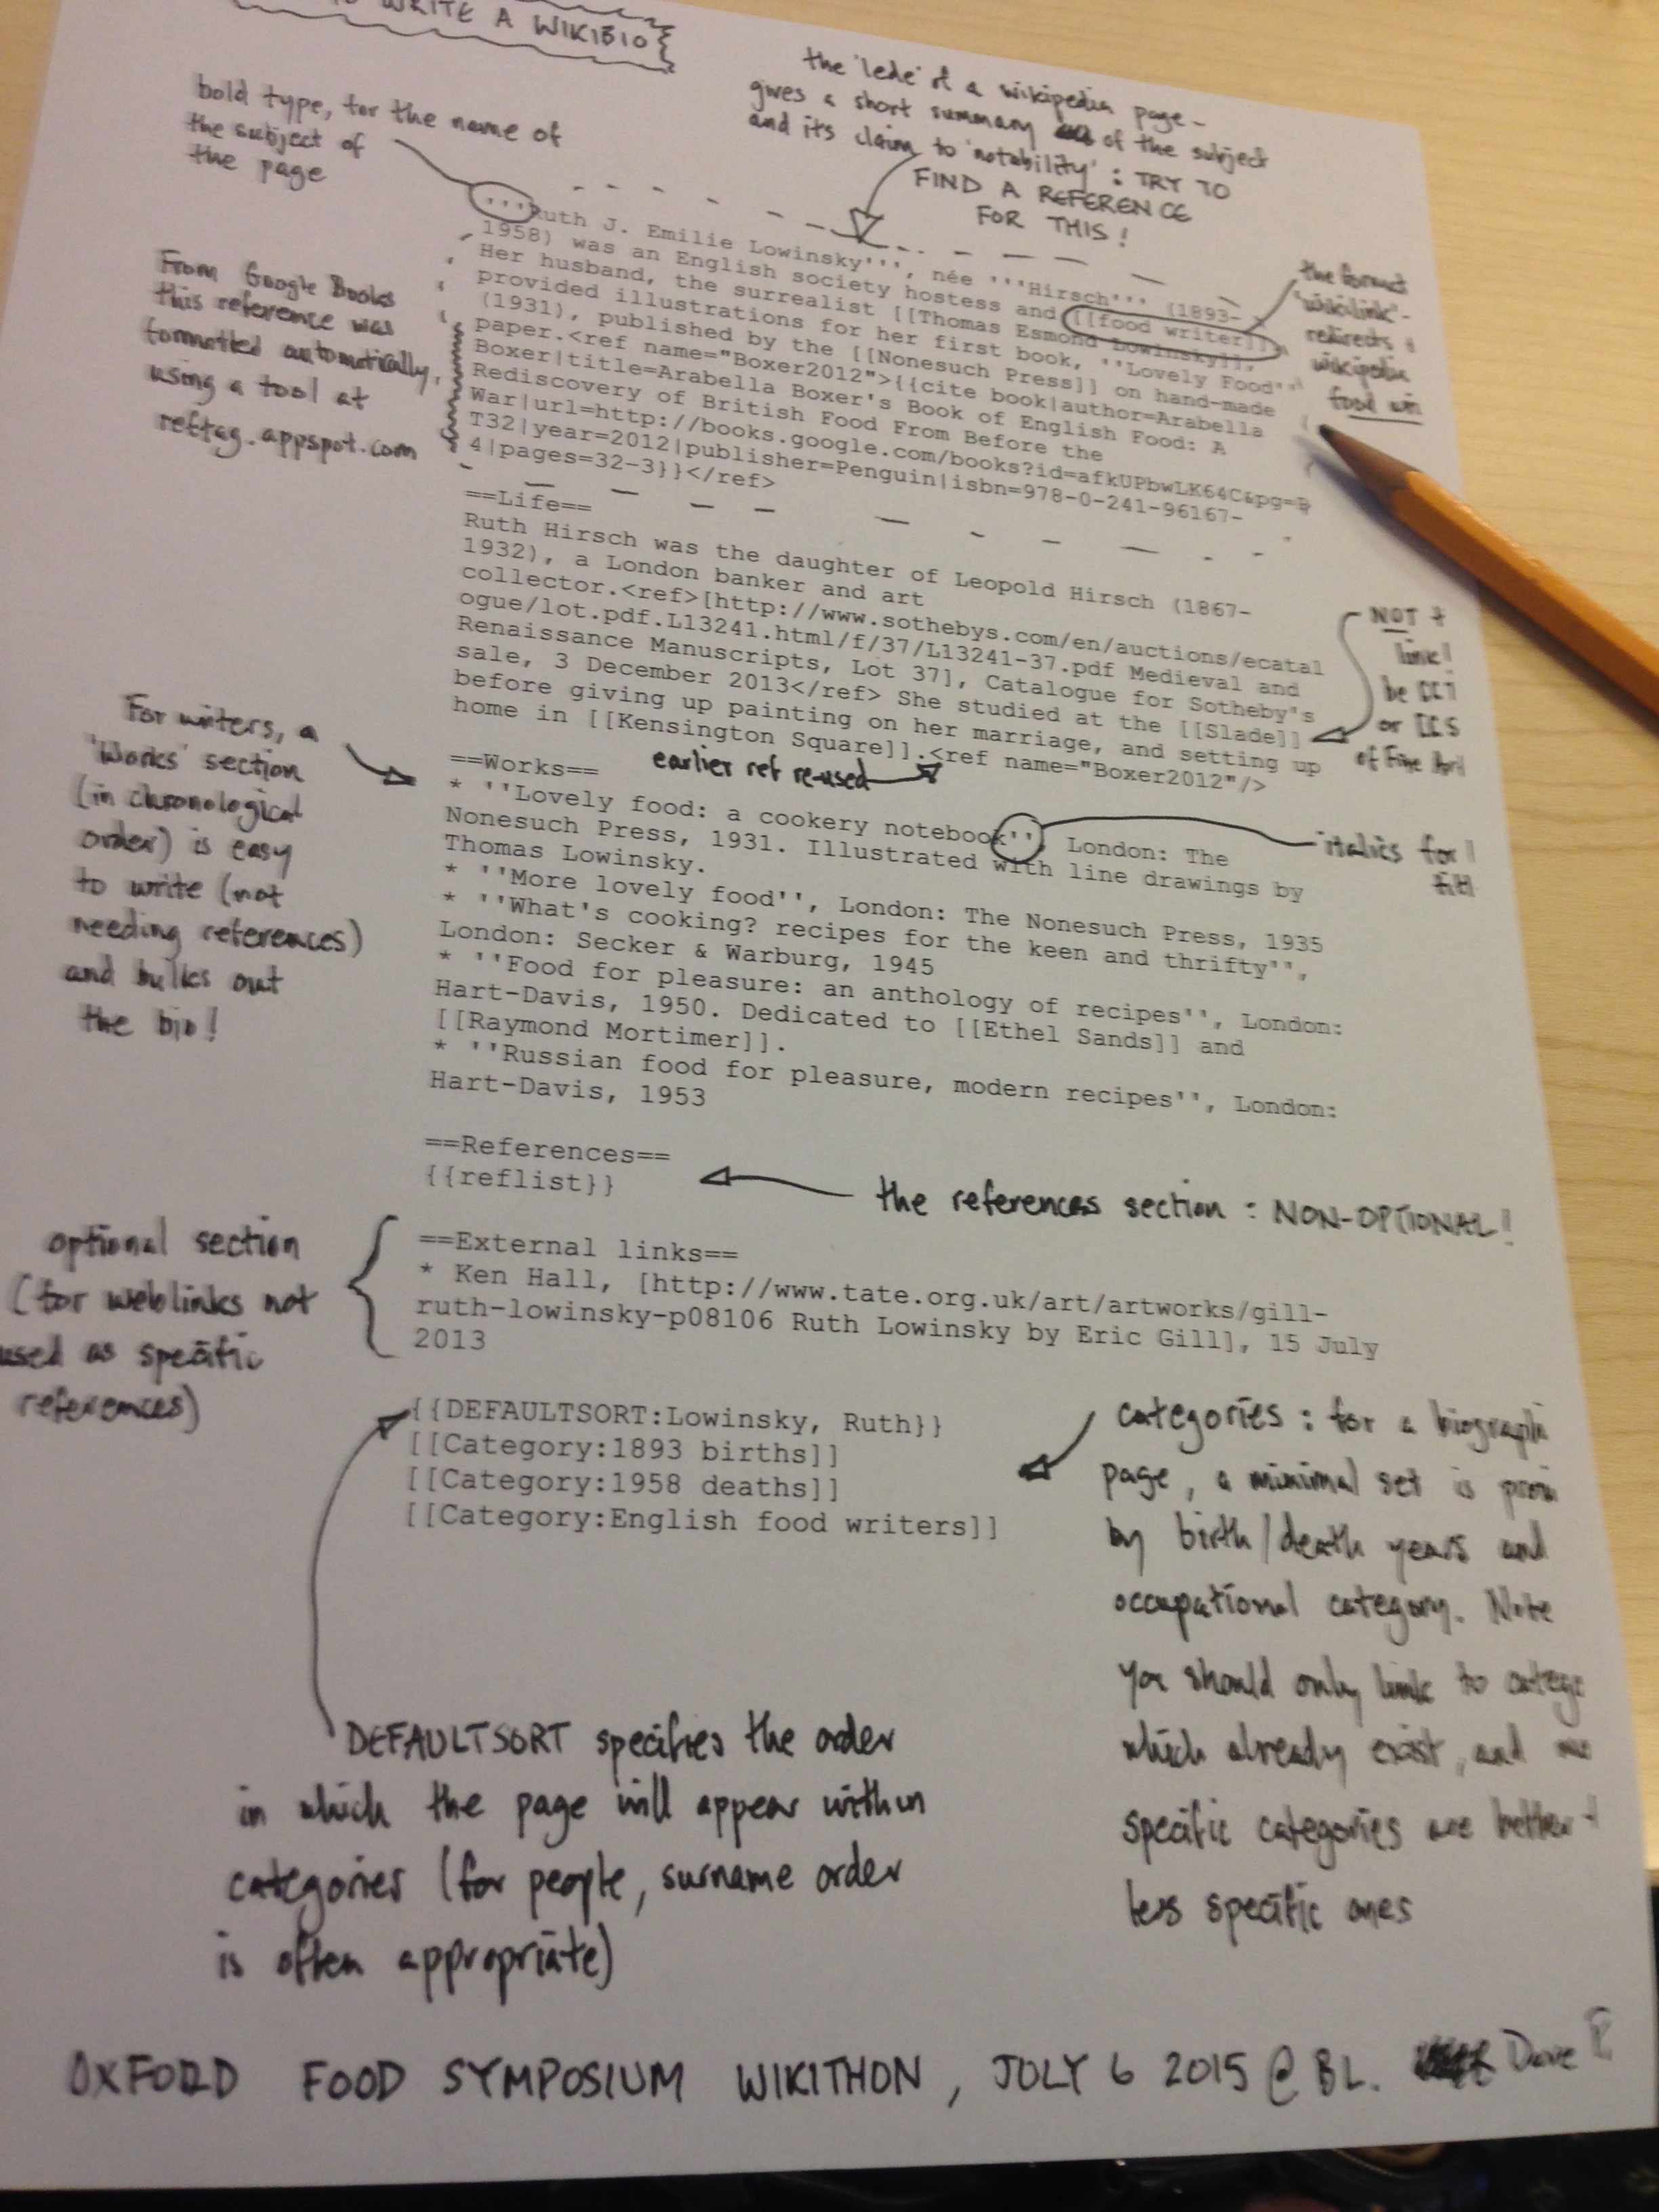 WRITE A WIKIBIO
bold type, for the name of
the subject of
the page
the 'lede' of a wikipedia page -
gives a short summary of the subject
and its claim to 'notability' : TRY TO
FIND A REFERENCE
FOR THIS!
From Google Books
this reference was
formatted automatically,
using a tool at
reftag.appspot.com
the format
'wikilink' -
redirects
wikipedia
food
'''Ruth J. Emilie Lowinsky''', née '''Hirsch''' (1893-
1958) was an English society hostess and [[food writer]].
Her husband, the surrealist [[Thomas Esmond Lowinsky]],
provided illustrations for her first book, ''Lovely Food''
(1931), published by the [[Nonesuch Press]] on hand-made
paper.<ref name="Boxer2012">{{cite book|author=Arabella
Boxer|title=Arabella Boxer's Book of English Food: A
Rediscovery of British Food From Before the
War|url=http://books.google.com/books?id=afkUPbwLK64C&pg=P
T32|year=2012|publisher=Penguin|isbn=978-0-241-96167-
4|pages=32-3}}</ref>
==Life==
Ruth Hirsch was the daughter of Leopold Hirsch (1867-
1932), a London banker and art
collector.<ref>[http://www.sothebys.com/en/auctions/ecatal
ogue/lot.pdf.L13241.html/f/37/L13241-37.pdf Medieval and
Renaissance Manuscripts, Lot 37], Catalogue for Sotheby's
sale, 3 December 2013</ref> She studied at the [[Slade]]
before giving up painting on her marriage, and setting up
home in [[Kensington Square]].<ref name="Boxer2012"/>
NOT
link!
be
or
of Fine Art
earlier ref re-used
For writers, a
'Works' section
(in chronological
order) is easy
to write (not
needing references)
and bulks out
the bio!
==Works==
* ''Lovely food: a cookery notebook'' London: The
Nonesuch Press, 1931. Illustrated with line drawings by
Thomas Lowinsky.
* ''More lovely food'', London: The Nonesuch Press, 1935
* ''What's cooking? recipes for the keen and thrifty'',
London: Secker & Warburg, 1945
* ''Food for pleasure: an anthology of recipes'', London:
Hart-Davis, 1950. Dedicated to [[Ethel Sands]] and
[[Raymond Mortimer]].
* ''Russian food for pleasure, modern recipes'', London:
Hart-Davis, 1953
italics for
==References==
{{reflist}}
the references section : NON-OPTIONAL!
optional section
(for weblinks not
used as specific
references)
==External links==
* Ken Hall, [http://www.tate.org.uk/art/artworks/gill-
ruth-lowinsky-p08106 Ruth Lowinsky by Eric Gill], 15 July
2013
{{DEFAULTSORT:Lowinsky, Ruth}}
[[Category:1893 births]]
[[Category:1958 deaths]]
[[Category:English food writers]]
categories : for a biograph
page, a minimal set is
by birth/death years and
occupational category. Note
you should only link to
which already exist, and
specific categories are better
less specific ones
DEFAULTSORT specifies the order
in which the page will appear within
categories (for people, surname order
is often appropriate)
OXFORD FOOD SYMPOSIUM WIKITHON, JULY 6 2015 @ BL. Dave